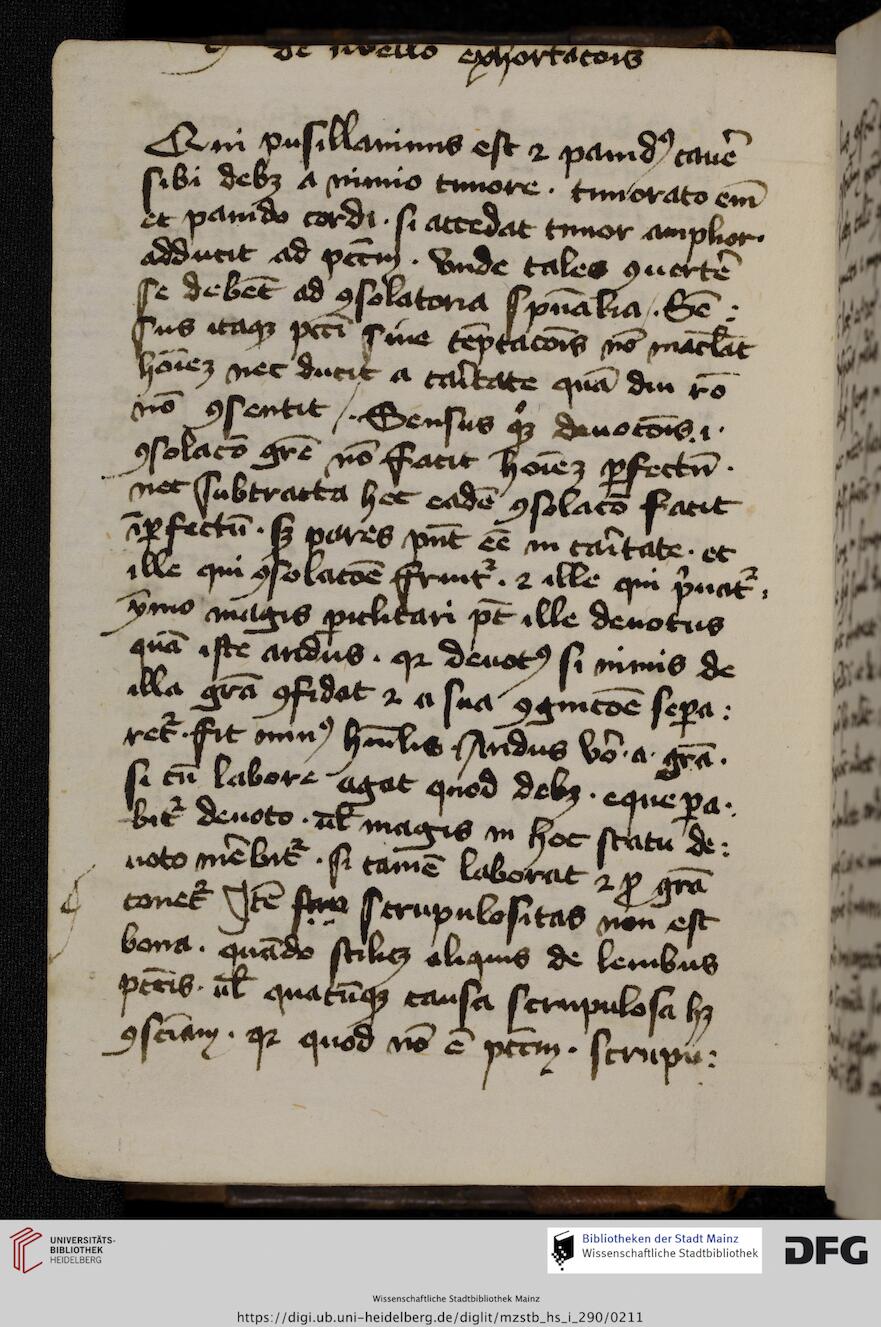 de libello exhortacois
Qui pusillanimus est ⁊ pauidꝯ cauē
sibi debꝫ a nimio timore · timorato eīm
et pauido cordi · si accedat timor amplior ·
adducit ad pctm̄ · vnde tales ꝯuertē
se debēt ad ꝯsolatoria spūalia / · Sē:
sus itaqꝫ pcti sine tēptacōis nō mac̄lat
hōiēꝫ nec ducit a caritate quā diu rō
nō ꝯsentit / · Sensus qꝫ deuotōis · i ·
ꝯsolacō grē nō facit hoīeꝫ ꝑfectū ·
nec subtracta hec eadē ꝯsolacō facit
īꝑfectū · sꝫ pares pn̄t eē in caritate · et
ille qui ꝯsolacōe fruit᷑ · ⁊ ille qui pͥuat᷑ ·
ẏmo magis ꝑiclitari pt̄ ille deuotus
quā iste aridus · qꝛ deuotꝯ si nimis de
illa grā ꝯfidat ⁊ a sua ꝯgnicōe sepa:
ret᷑ · fit minꝯ hūilis · Aridus vō · a · grā ·
si cū labore agat quod debꝫ · eque pa ·
bit᷑ deuoto · ul̄ magis in hoc statu de:
uoto mēbit᷑ · si tamē laborat ⁊ ꝓ grā
conet᷑ Itē scrupulositas non est
bona · quādo scilicꝫ aliquis de leuibus
pctis · ul̄ quacūqꝫ causa scrupulosa hꝫ
ꝯsciam · qꝛ quod nō ē pctm̄ · scrupu:
UNIVERSITÄTS-
BIBLIOTHEK
HEIDELBERG
Bibliotheken der Stadt Mainz
Wissenschaftliche Stadtbibliothek
DFG
Wissenschaftliche Stadtbibliothek Mainz
https://digi.ub.uni-heidelberg.de/diglit/mzstb_hs_i_290/0211